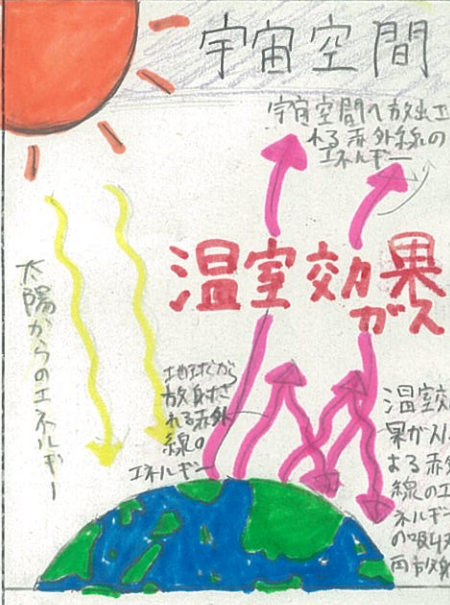 宇宙空間
宇宙空間へ放出さ
れる赤外線の
エネルギー
温室効果
ガス
太陽からのエネルギー
地球から
放射さ
れる赤外
線の
エネルギー
温室効
果ガスに
よる赤外
線のエ
ネルギー
の吸収
再放射